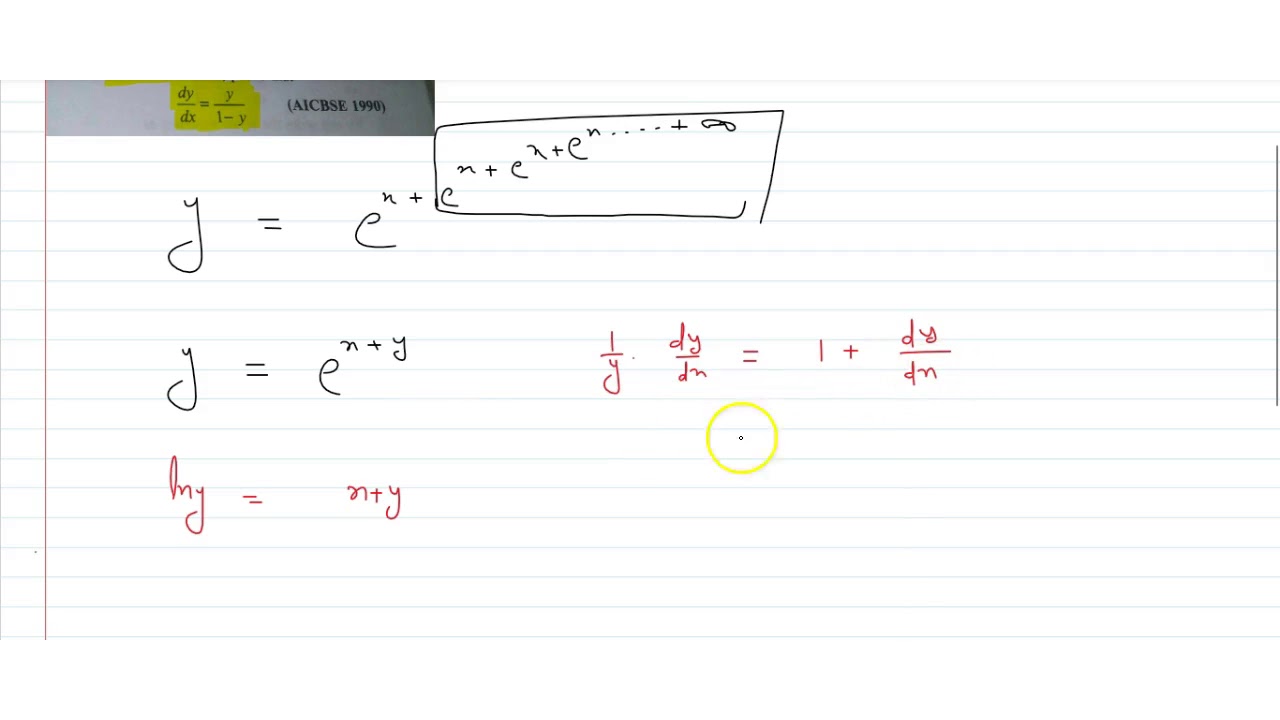 dy/dx = y/(1-y) (AICBSE 1990)
y = e^{x + e^{x + e^{x + e^{x ..... + ∞}}}}
y = e^{x + y}
1/y . dy/dx = 1 + dy/dx
ln y = x+y